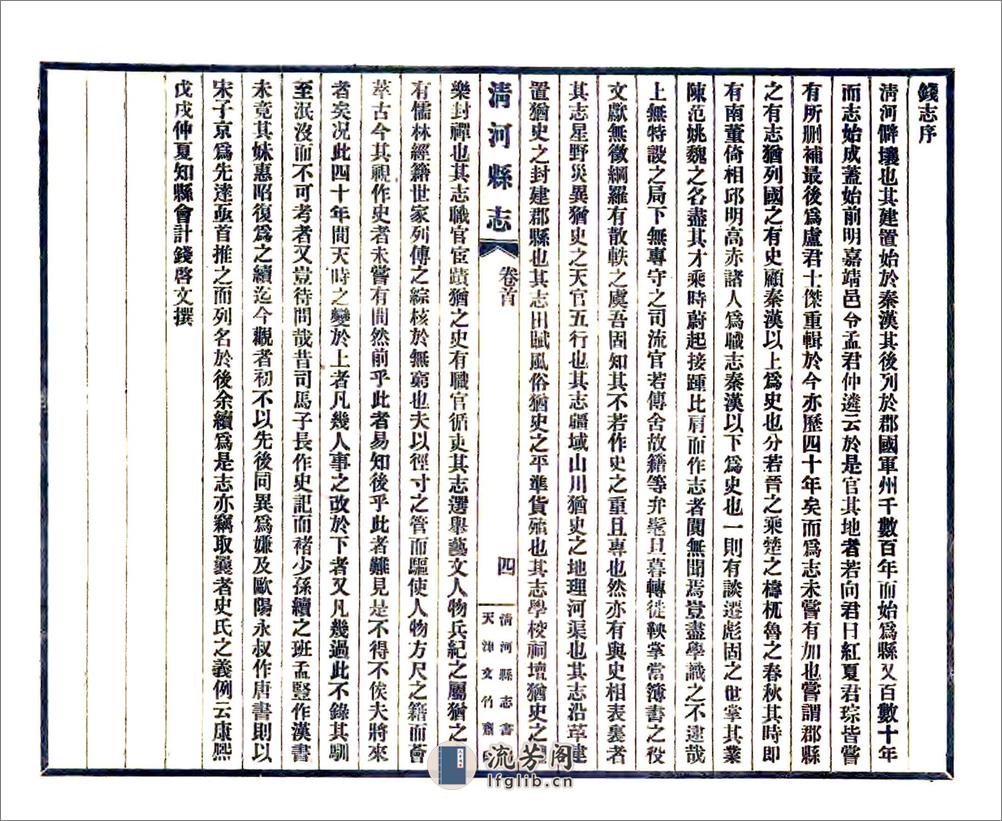 錢志序
淸河僻壤也其建置始於秦漢其後列於郡國軍州千數百年而始爲縣又百數十年
而志始成蓋始前明嘉靖邑令孟君仲遴云於是官其地者若向君日紅夏君琮皆嘗
有所删補最後爲盧君士傑重輯於今亦歷四十年矣而爲志未嘗有加也嘗謂郡縣
之有志猶列國之有史顧秦漢以上爲史也分若晉之乘楚之檮杌魯之春秋其時即
有南董倚相邱明高赤諸人爲職志秦漢以下爲史也一則有談遷彪固之世掌其業
陳范姚魏之名盡其才乘時蔚起接踵比肩而作志者闃無聞焉豈盡學識之不逮哉
上無特設之局下無專守之司流官若傳舍故籍等弁髦旦暮轉徙鞅掌簿書之役
文獻無徵綱羅有散軼之虞吾固知其不若作史之重且專也然亦有與史相表裏者
其志星野災異猶史之天官五行也其志疆域山川猶史之地理河渠也其志沿革建
置猶史之封建郡縣也其志田賦風俗猶史之平準貨殖也其志學校祠壇猶史之禮
淸河縣志
卷首
四
淸河縣志書
天津文竹齋
樂封禪也其志職官宦蹟猶之史有職官循吏其志選舉藝文人物兵紀之屬猶之史
有儒林經籍世家列傳之綜核於無窮也夫以徑寸之管而驅使人物方尺之籍而薈
萃古今其視作史者未嘗有間然前乎此者易知後乎此者難見是不得不俟夫將來
者矣况此四十年間天時之變於上者凡幾人事之改於下者又凡幾過此不錄其馴
至泯沒而不可考者又豈待問哉昔司馬子長作史記而褚少孫續之班孟堅作漢書
未竟其妹惠昭復爲之續迄今觀者初不以先後同異爲嫌及歐陽永叔作唐書則以
宋子京爲先達亟首推之而列名於後余續爲是志亦竊取曩者史氏之義例云康熙
戊戌仲夏知縣會計錢啓文撰
流芳阁
lfglib.cn